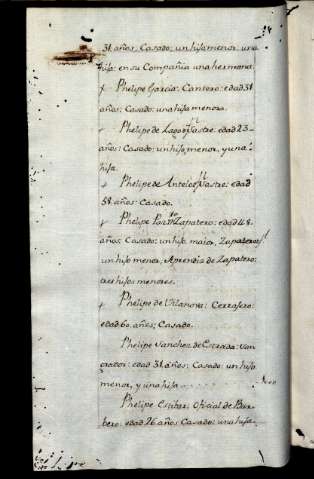 31 años, Casado: un hijo menor, una
hija: en su Compañia una hermana.
+ Phelipe Garcia: Cantero: edad 31
años: Casado: una hija menor.
+ Phelipe de Lago: Sastre: edad 23
años: Casado: un hijo menor, y una
hija.
+ Phelipe de Antelo: Sastre: edad
58. años: Casado.
+ Phelipe Zapatero: edad 48.
años: Casado: un hijo maior, Zapatero:
un hijo menor, Aprendiz de Zapatero:
tres hijos menores.
+ Phelipe de Vilanova: Cerrajero:
edad 60. años; Casado.
Phelipe Sanchez de Estrada: San
grador: edad 31. años: Casado: un hijo
menor, y una hija
Phelipe Oficial de Bar
bero: edad 26 años Casado: una hija